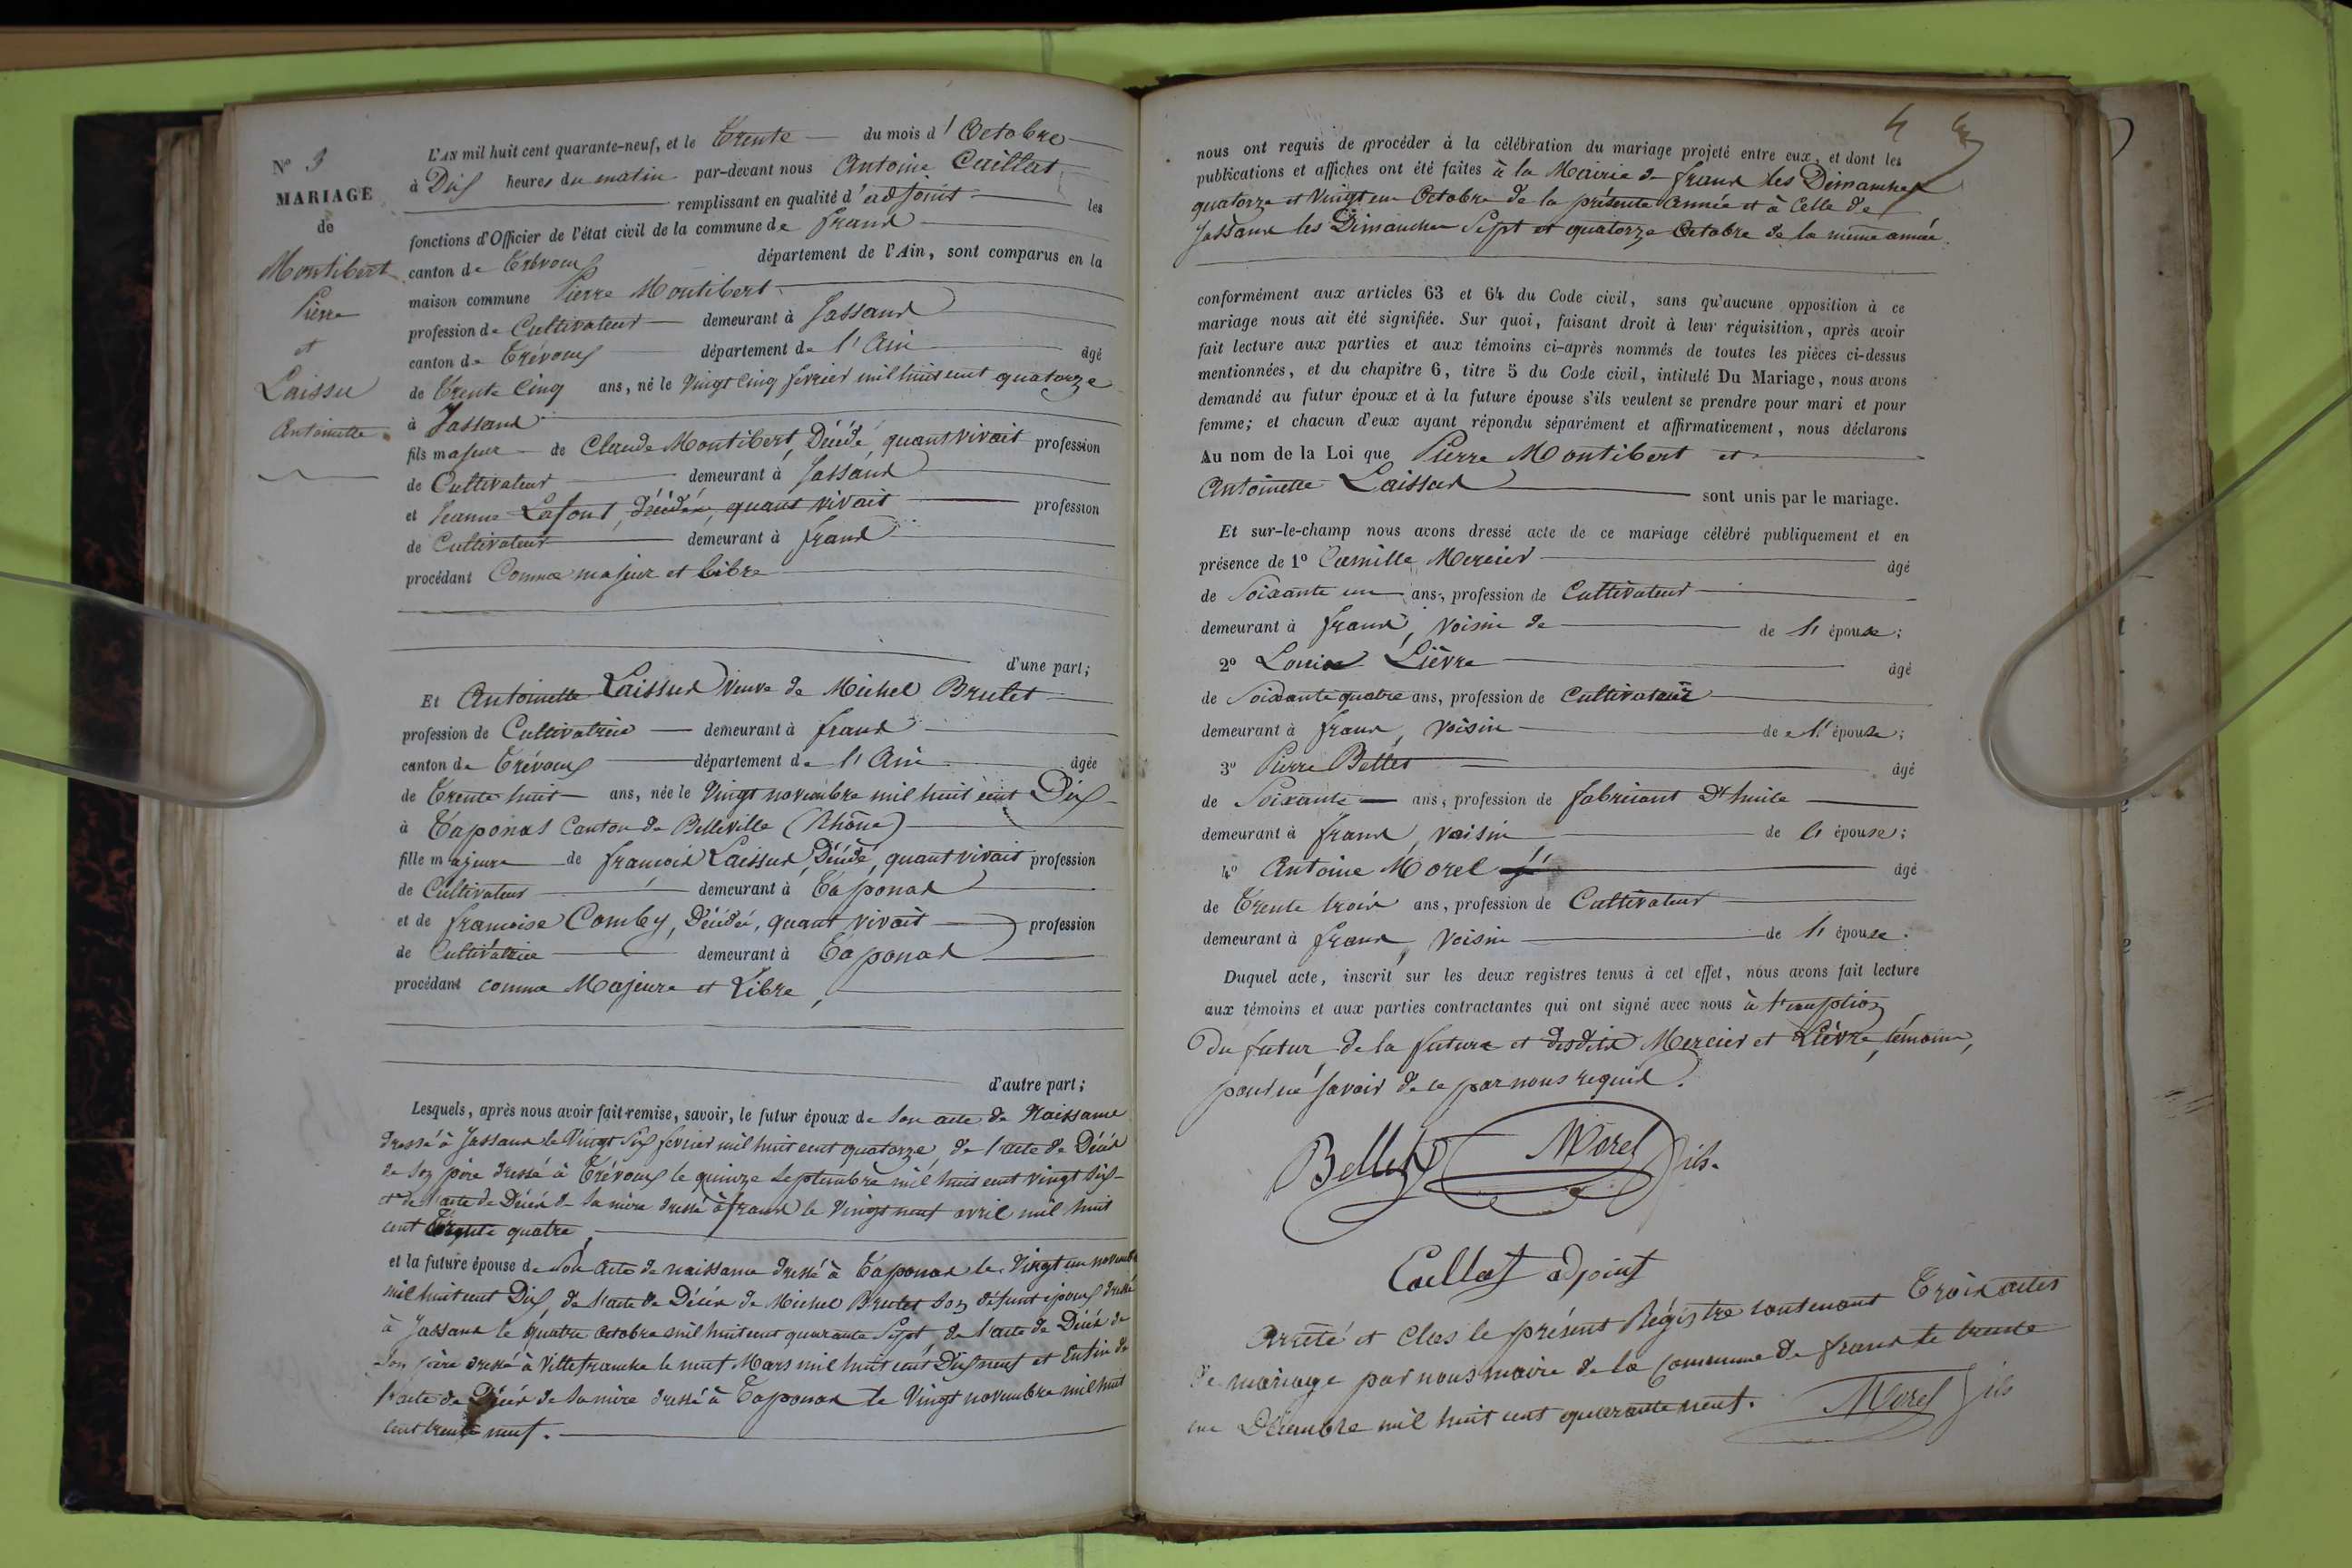 N° 3
MARIAGE
de
Montibert
Pierre
et
Laissu
Antoinette
L'AN mil huit cent quarante-neuf, et le Trente du mois d'Octobre
à Dix heures du matin par-devant nous Antoine Caillat
remplissant en qualité d'adjoint les
fonctions d'Officier de l'état civil de la commune de frans
canton de Trévoux département de l'Ain, sont comparus en la
maison commune Pierre Montibert
profession de Cultivateur demeurant à Jassans
canton de Trévoux département de l'Ain âgé
de Trente Cinq ans, né le Vingt Cinq fevrier mil huit cent quatorze
à Jassans
fils majeur de Claude Montibert, Décédé, quant vivait profession
de Cultivateur demeurant à Jassans
et Jeanne Lafont, décédée, quant vivait profession
de Cultivateur demeurant à frans
procédant Comme majeur et libre
d'une part;
Et Antoinette Laissus Veuve de Michel Brulet
profession de Cultivatrice demeurant à frans
canton de Trévoux département de l'Ain âgée
de Trente huit ans, née le Vingt novembre mil huit cent Dix
à Taponas Canton de Belleville (Rhône)
fille majeure de françois Laissus, Décédé, quant vivait profession
de Cultivateur demeurant à Taponas
et de françoise Comby, Décédée, quant vivait profession
de Cultivatrice demeurant à Taponas
procédant comme Majeure et Libre,
d'autre part;
Lesquels, après nous avoir fait remise, savoir, le futur époux de son acte de Naissance
dressé à Jassans le Vingt Six fevrier mil huit cent quatorze, de l'acte de Décès
de son père dressé à Trévoux le quinze Septembre mil huit cent vingt six
et de l'acte de Décès de sa mère dressé à frans le Vingt neuf avril mil huit
cent Trente quatre,
et la future épouse de son Acte de naissance dressé à Taponas le Vingt un novembre
mil huit cent Dix, de l'acte de Décès de Michel Brulet son défunt époux dressé
à Jassans le quatre octobre mil huit cent quarante Sept, de l'acte de Décès de
son père dressé à Villefranche le neuf Mars mil huit cent Dix neuf et Enfin de
l'acte de Décès de sa mère dressé à Taponas le Vingt novembre mil huit
cent trente neuf.
4
nous ont requis de procéder à la célébration du mariage projeté entre eux, et dont les
publications et affiches ont été faites à la Mairie de frans les Dimanches
quatorze et Vingt un Octobre de la présente Année et à Celle de
Jassans les Dimanches Sept et quatorze Octobre de la même année.
conformément aux articles 63 et 64 du Code civil, sans qu'aucune opposition à ce
mariage nous ait été signifiée. Sur quoi, faisant droit à leur réquisition, après avoir
fait lecture aux parties et aux témoins ci-après nommés de toutes les pièces ci-dessus
mentionnées, et du chapitre 6, titre 5 du Code civil, intitulé Du Mariage, nous avons
demandé au futur époux et à la future épouse s'ils veulent se prendre pour mari et pour
femme; et chacun d'eux ayant répondu séparément et affirmativement, nous déclarons
Au nom de la Loi que Pierre Montibert et
Antoinette Laissus sont unis par le mariage.
Et sur-le-champ nous avons dressé acte de ce mariage célébré publiquement et en
présence de 1° Camille Mercier âgé
de Soixante un ans, profession de Cultivateur
demeurant à frans, voisin de de l'épouse;
2° Louis Lièvre âgé
de Soixante quatre ans, profession de Cultivateur
demeurant à frans, voisin de l'épouse;
3° Pierre Bellet âgé
de Soixante ans, profession de fabricant D'huile
demeurant à frans, voisin de l'épouse;
4° Antoine Morel âgé
de Trente trois ans, profession de Cultivateur
demeurant à frans, Voisin de l'épouse.
Duquel acte, inscrit sur les deux registres tenus à cet effet, nous avons fait lecture
aux témoins et aux parties contractantes qui ont signé avec nous à l'exception
Du futur de la future et desdits Mercier et Lièvre, témoins,
pour ne savoir de ce par nous requis.
Bellet Morel fils.
Caillat adjoint
Arrêté et Clos le présent Régistre contenant Trois actes
de mariage par nous maire de la Commune de frans le trente
un Décembre mil huit cent quarante neuf. Morel fils